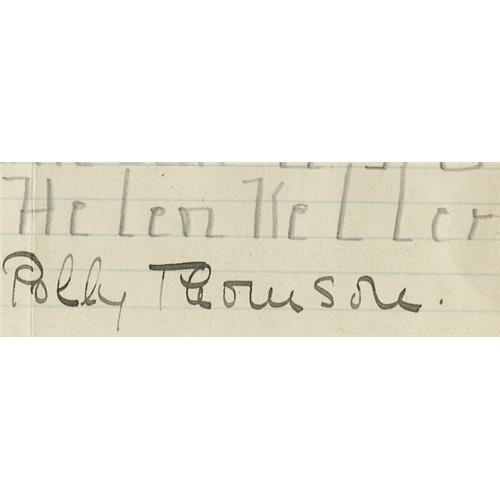 Helen Keller
Polly Thomson.